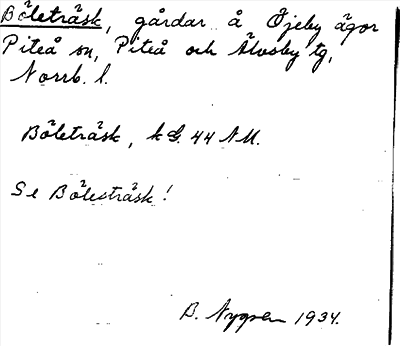 Böleträsk, gårdar å Öjeby ägor
Piteå sn, Piteå och Älvsby tg,
Norrb. l.
Böleträsk, k G. 44 NM.
Se Bölesträsk!
B. Nygren 1934.